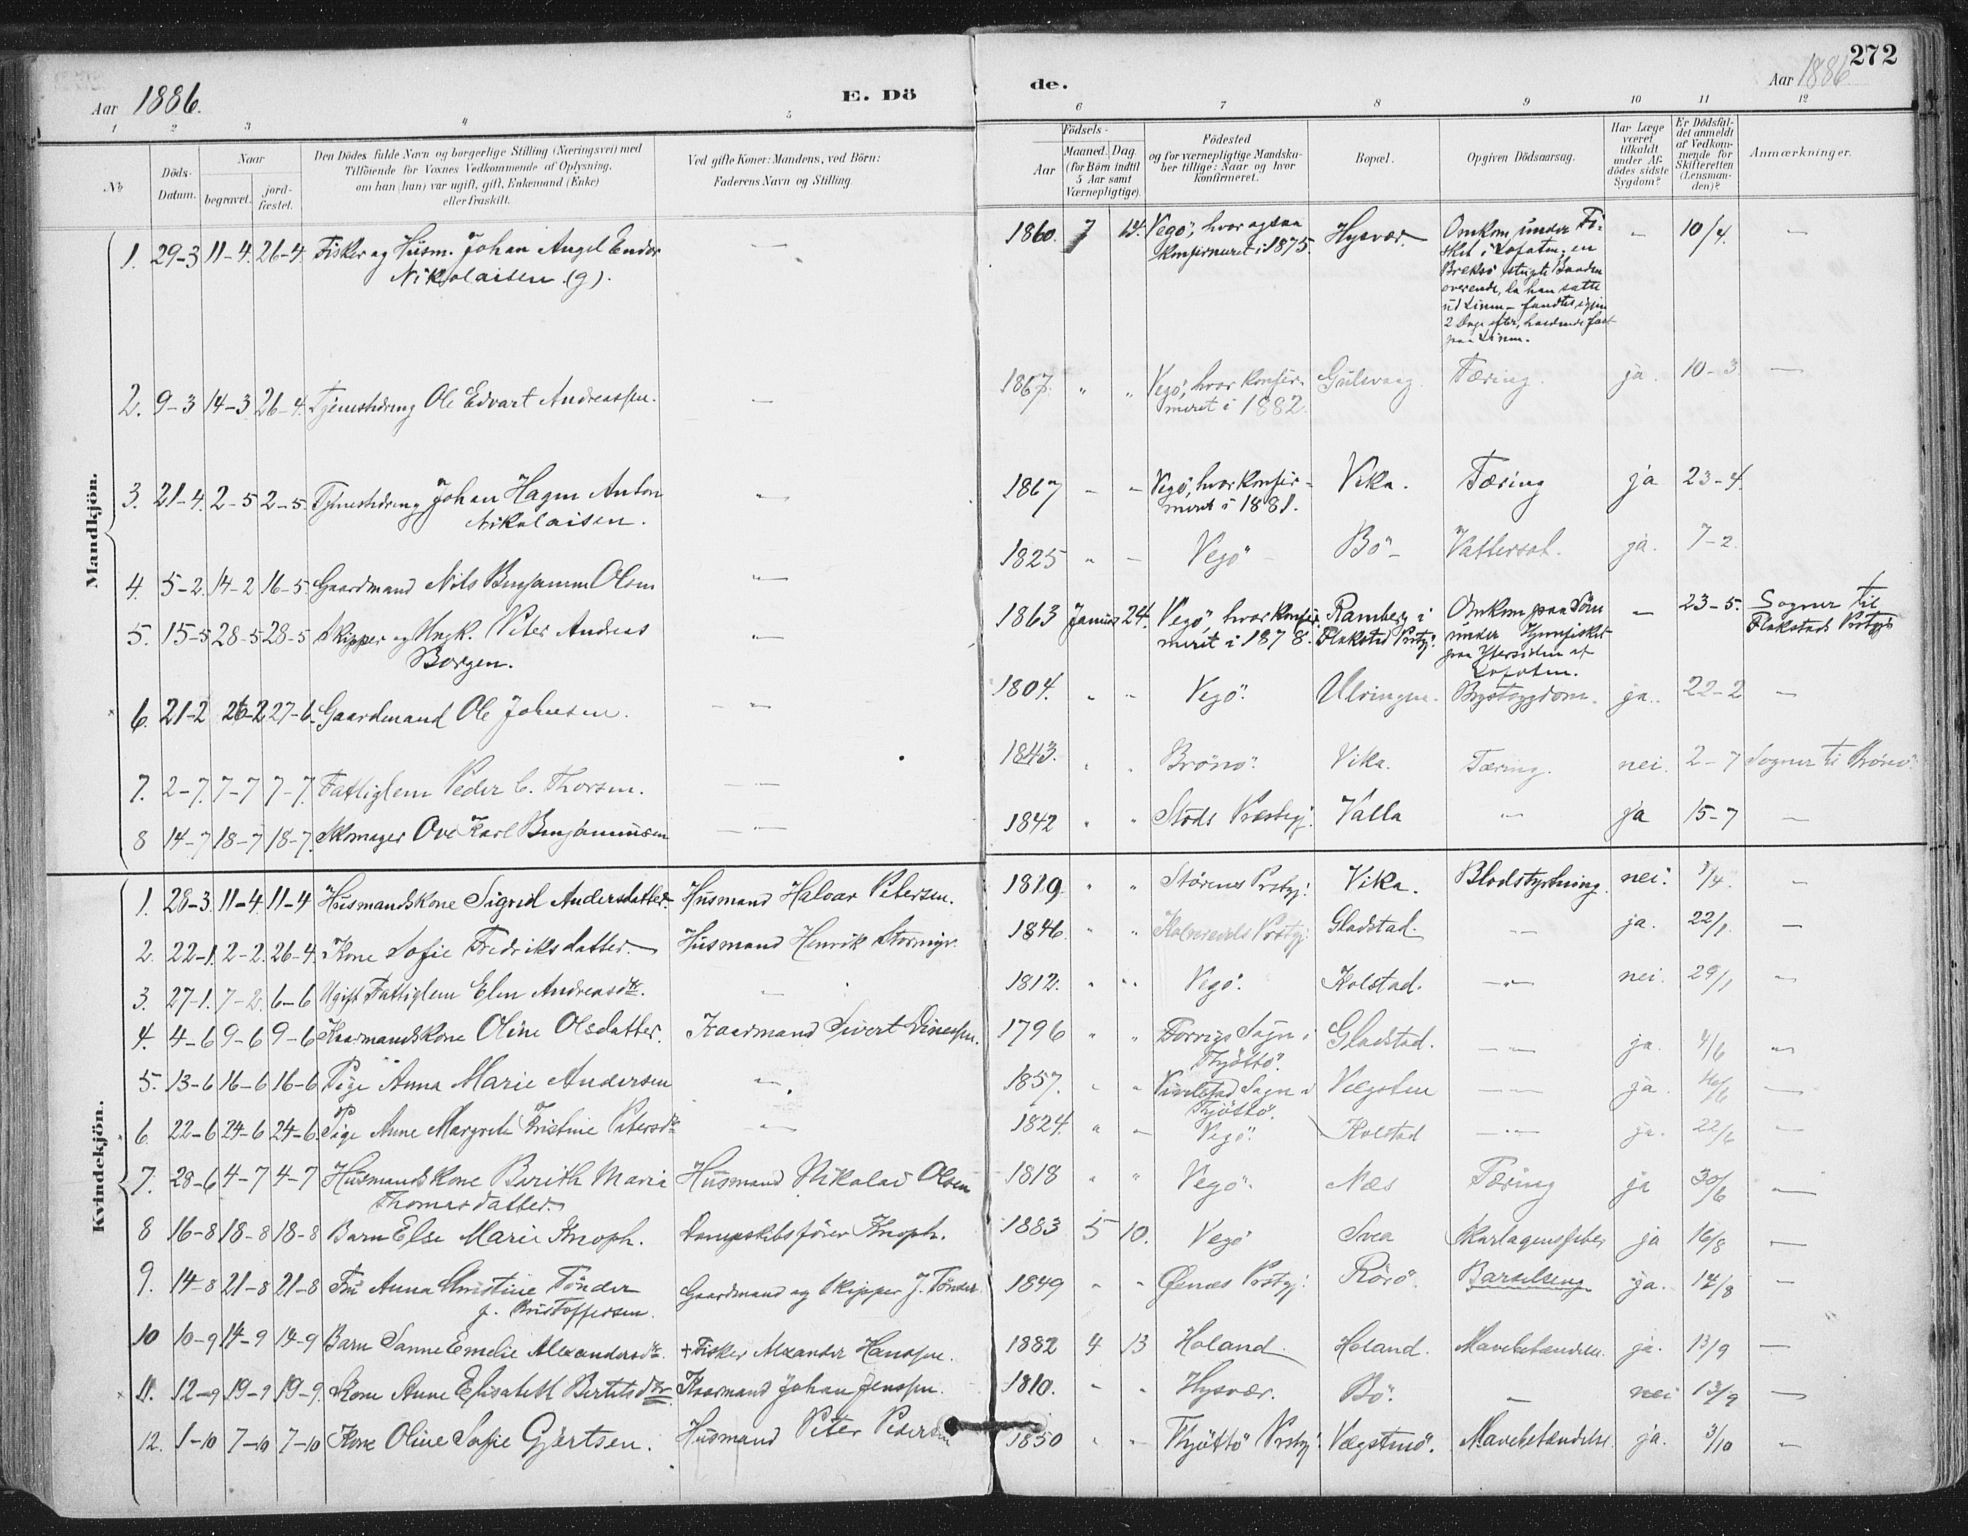 272
Aar 1886. E. Dö de. Aar 1886
1 2 3 4 5 6 7 8 9 10 11 12
No
Döds-Datum.
Naar begravet. jordfæstet.
Den Dödes fulde Navn og borgerlige Stilling (Næringsvei) med Tilföiende for Voxnes Vedkommende af Oplysning, om han (hun) var ugift, gift, Enkemand (Enke) eller fraskilt.
Ved gifte Koner: Mandens, ved Börn: Faderens Navn og Stilling.
Födsels-Aar Maaned. Dag (for Börn indtil 5 Aar samt Værnepligtige).
Födested og for værnepligtige Mandskaber tillige: Naar og hvor konfirmeret.
Bopæl.
Opgiven Dödsaarsag.
Har Læge været tilkaldt under Afdödes sidste Sygdom?
Er Dödsfaldet anmeldt af Vedkommende for Skifteretten (Lensmanden)?
Anmærkninger.
Mandkjön.
1. 29-3 11-4. 26-4. Fisker og Husm. Johan Angel Endor Nikolaisen (g). — 1860. 7 14. Vegö, hvor ogsaa konfirmeret i 1875. Hysvær. Omkom under Fisket i Lofoten, en Bræksö stupte Baaden overende, da han satte ud Linen – fandtes igjen 2 Dage efter, hældende fast paa Linen. – 10/4. –
2. 9-3 14-3 26-4. Tjenestedreng Ole Edvart Andreassen. — 1867. " " Vegö, hvor konfirmeret i 1882. Gulsvaag. Tæring. ja. 10-3 —
3. 21-4. 2-5 2-5. Tjenestedreng Johan Hagen Anton Nikolaisen. — 1867 – – Vegö, hvor konfirmeret i 1881. Vika. Tæring ja 23-4.
4. 5-2. 14-2 16-5. Gaardmand Nils Benjamin Olsen — 1825 " – Vegö Bö Vattersot. ja. 7-2.
5. 15-5 28-5 28-5 Skipper og Ungk. Peter Andreas Borgen. — 1863 Januar 24. Vegö hvor konfirmeret i 1878. Ramberg i Flakstad Prstgj. Omkom paa Söen under Fiskeri paa Ydersiden af Lofoten. – 23-5. Sogner til Flakstads Prstgj.
6. 21-2 26-2 27-6. Gaardmand Ole Johnsen. — 1804. " " Vegö. Ulvingen. Brystsygdom. ja. 22-2 —
7. 2-7. 7-7 7-7. Fattiglem Peder C. Thorsen. — 1843. " " Brönö. Vika. Tæring. nei. 2-7 Sogner til Brönö.
8 14-7 18-7 18-7. Skomager Ove Karl Benjaminsen — 1842 " " Stods Præstegj. Valla — ja 15-7 —
Kvindekjön.
1. 28-3. 11-4. 11-4 Husmandskone Sigrid Andersdatter. Husmand Halvar Petersen. 1819. " " Störens Prstgj. Vika. Blodstyrtning. nei. 1/4. –
2. 22-1. 2-2. 26-4. Kone Sofie Fredriksdatter. Husmand Henrik Stormyr. 1846. " " Kolvereids Prstgj. Gladstad. — ja. 22/1. –
3. 27-1. 7-2. 6-6 Ugift Fattiglem Elen Andreasdtr. — 1812. " " Vegö. Kolstad. — nei. 29/1 –
4. 4-6 9-6 9-6 Kaarmandskone Oline Olsdatter. Kaarmand Sivert Dinesen. 1796 " Forvigs Sogn i Thjöttö. Gladstad. — ja. 4/6 –
5. 13-6 16-6 16-6 Pige Anna Marie Andersen — 1857. " " Vivelstad Sogn i Thjöttö. Vægsten — ja. 16/6 —
6. 22-6 24-6 24-6 Pige Anne Margrete Kristine Petersdtr — 1824. " – Vegö. Kolstad — ja. 22/6 —
7. 28-6 4-7 4-7 Husmandskone Berith Maria Thomasdatter. Husmand Nikolai Olsen 1818 " " Vegö. Næs Tæring ja 30/6 —
8 16-8 18-8 18-8 Barn Else Marie Knoph. Dampskibsförer Knoph. 1883 5 10. Vegö Svea Skarlagensfeber ja 16/8 —
9. 14-8 21-8 21-8 Fru Anna Christine Tönder f. Kristoffersen. Gaardmand og Skipper J. Tönder. 1849 " " Öxnæs Prstgj. Rörö. Barselseng ja. 14/8 –
10 10-9 14-9 14-9 Barn Sanne Emelie Alexandersdtr. + Fisker Alexander Hanssen. 1882 4 13 Holand. Holand. Mavebetændelse. ja. 13/9 —
11. 12-9 19-9 19-9. Kone Anne Elisabeth Bertelsdtr Kaarmand Johan Jenssen. 1810. " " Hysvær. Bö. – nei 13/9 –
12. 1-10 7-10 7-10 Kone Oline Sofie Gjertsen. Husmand Peter Pedersen 1850 " – Thjöttö Prstgj. Vægstenö. Mavebetændelse. ja. 3/10 –